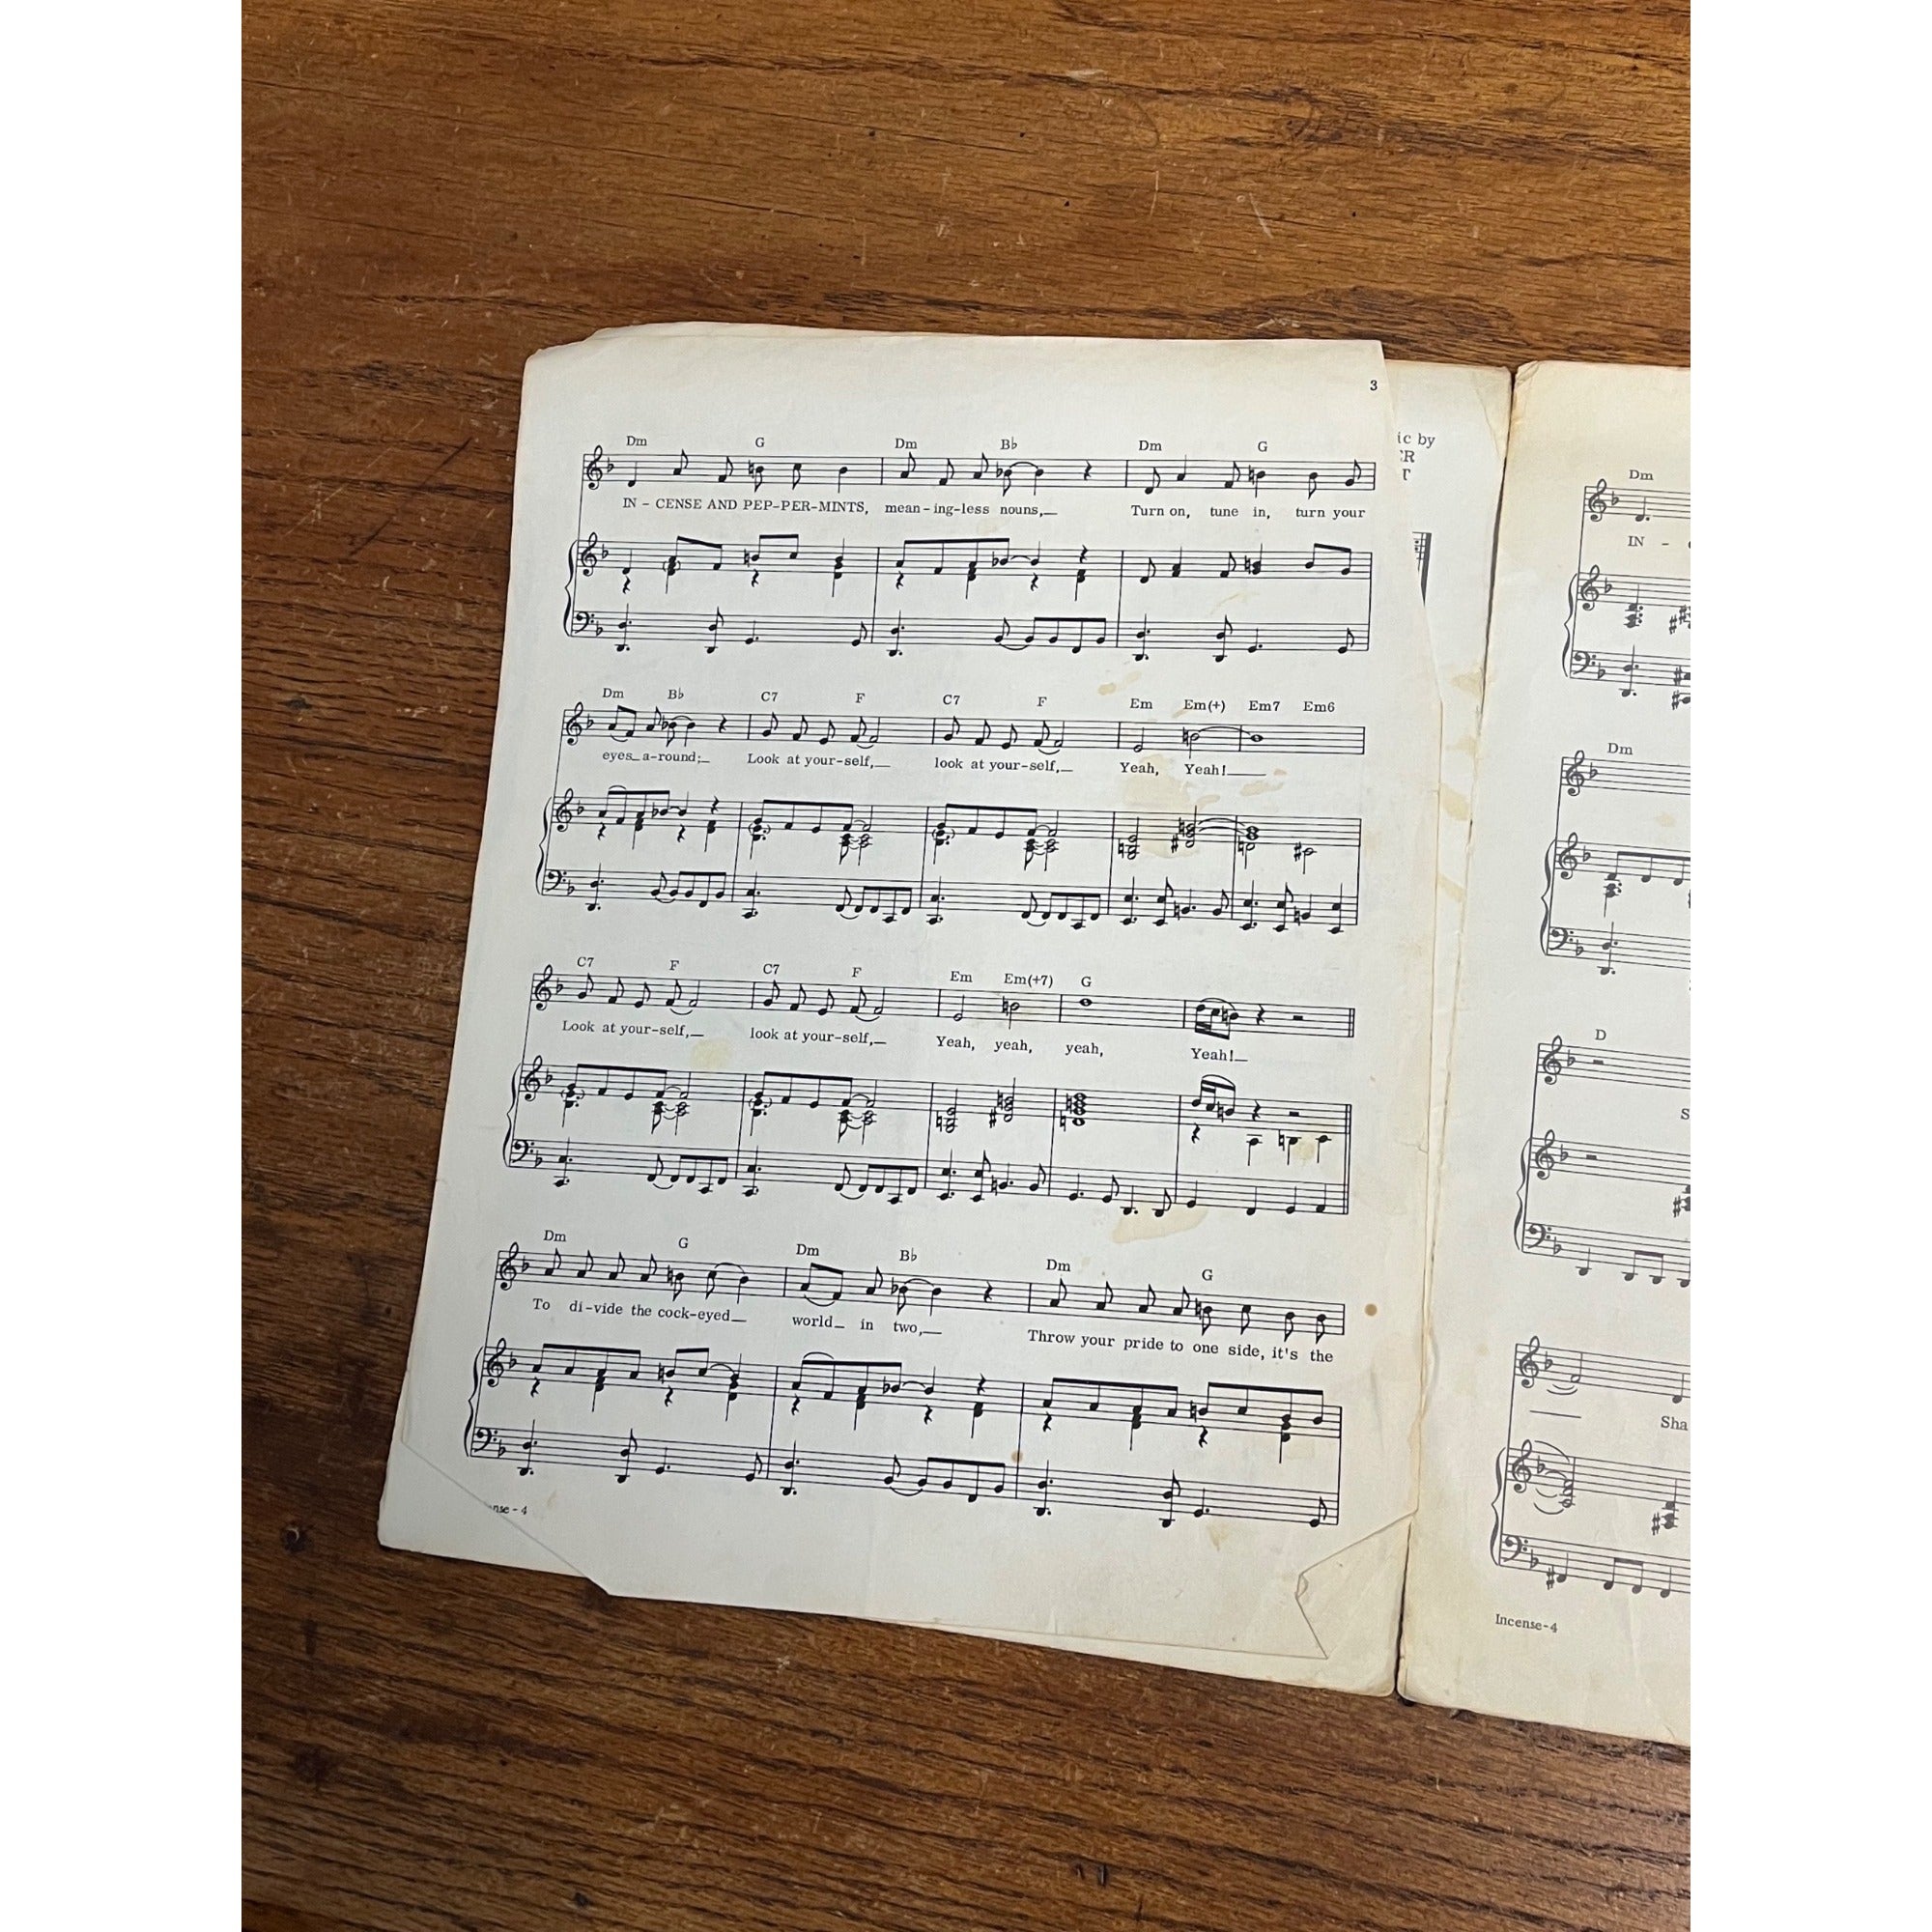 3
Dm G Dm B♭ Dm G
IN - CENSE AND PEP-PER-MINTS, mean-ing-less nouns,_ Turn on, tune in, turn your
Dm B♭ C7 F C7 F Em Em(+) Em7 Em6
eyes_ a-round;_ Look at your-self,_ look at your-self,_ Yeah, Yeah!_
C7 F C7 F Em Em(+7) G
Look at your-self,_ look at your-self,_ Yeah, yeah, yeah, Yeah!_
Dm G Dm B♭ Dm G
To di-vide the cock-eyed_ world_ in two,_ Throw your pride to one side, it's the
nse - 4
ic by
Dm
IN -
Dm
D
S
Sha
Incense-4